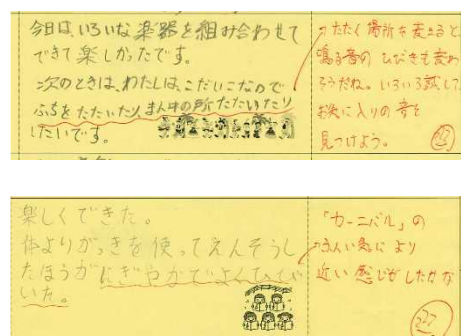 今日は、いろいな楽器を組み合わせて
できて楽しかったです。
次のときは、わたしは、こだいこなので
ふちをたたいたり、まん中の所たたいたり
したいです。
たたく場所を変えると、
鳴る音の ひびきも変わ
そうだね。いろいろ試して
お気に入りの音を
見つけよう。
楽しくできた。
体よりがっきを使ってえんそうし
たほうがにぎやかでよくひびい
いた。
「カーニバル」の
ふんい気に より
近い 感じがしたかな